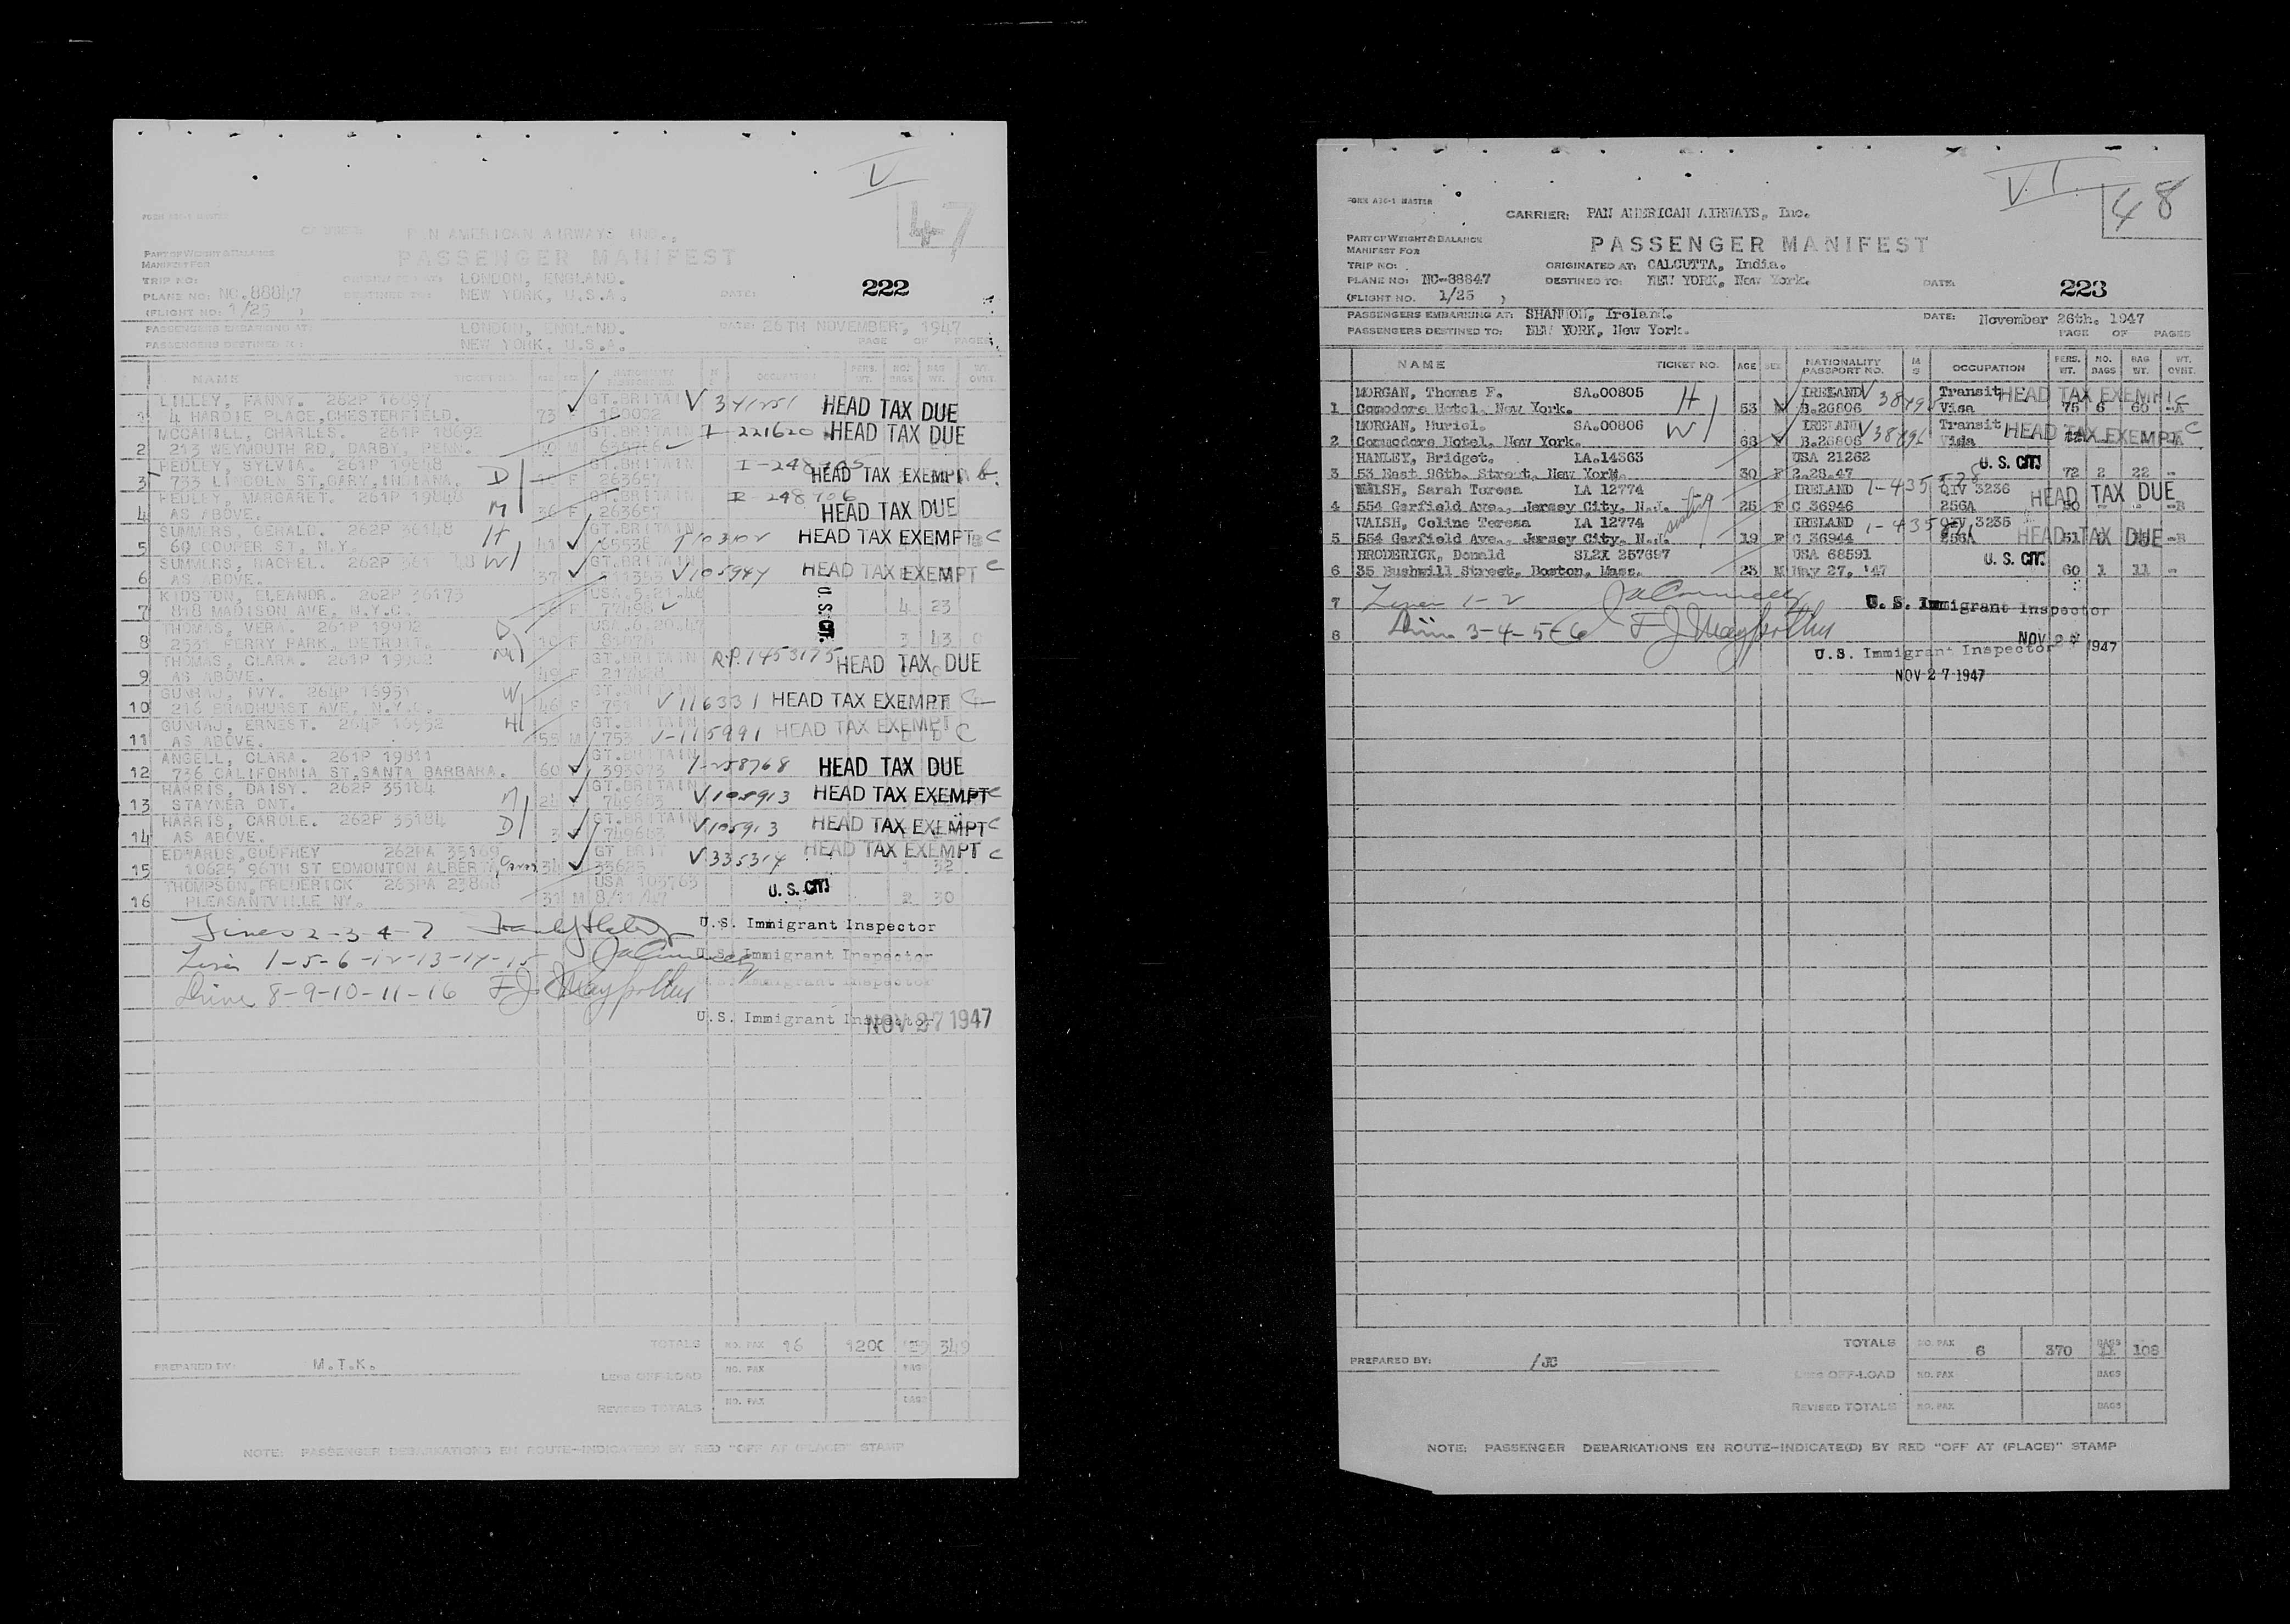 V
47
FORM ATC-1 MASTER
CARRIER: PAN AMERICAN AIRWAYS INC.,
PART OF WEIGHT & BALANCE
MANIFEST FOR
PASSENGER MANIFEST
TRIP NO:
ORIGINATED AT: LONDON, ENGLAND.
PLANE NO: NC.88847
DESTINED TO: NEW YORK, U.S.A.
DATE:
222
(FLIGHT NO: 1/25 )
PASSENGERS EMBARKING AT: LONDON, ENGLAND.
DATE: 26TH NOVEMBER, 1947
PASSENGERS DESTINED TO: NEW YORK, U.S.A.
PAGE OF PAGES
NAME TICKET NO. AGE SEX NATIONALITY PASSPORT NO. OCCUPATION PERS. WT. NO. BAGS BAG WT. WT. OVNT.
LILLEY, FANNY. 262P 16697 GT.BRITAIN V 341251 HEAD TAX DUE
1 4 HARDIE PLACE,CHESTERFIELD. 73 F 180002
MCCAHILL, CHARLES. 261P 18692 GT.BRITAIN I-221620 HEAD TAX DUE
2 213 WEYMOUTH RD, DARBY, PENN. M
HEDLEY, SYLVIA. 261P 19848 D GT.BRITAIN HEAD TAX EXEMPT
3 733 LINCOLN ST,GARY,INDIANA. F 263657
HEDLEY, MARGARET. 261P 19848 GT.BRITAIN I-248706
4 AS ABOVE. M 36 F 263657 HEAD TAX DUE
SUMMERS, GERALD. 262P 36148 H GT.BRITAIN HEAD TAX EXEMPT C
5 60 COOPER ST, N.Y. 41
SUMMERS, RACHEL. 262P W GT.BRITAIN V105944 HEAD TAX EXEMPT C
6 AS ABOVE. 37
KIDSTON, ELEANOR. 262P 36173 USA.5.21.46 U.S. CIT.
7 818 MADISON AVE, N.Y.C. F 4 23
THOMAS, VERA. 261P 19902 D USA.6.20.47
8 2331 FERRY PARK, DETROIT. F 3 43
THOMAS, CLARA. 261P 19902 M GT.BRITAIN R.P.1453175 HEAD TAX DUE
9 AS ABOVE. 49 F
GUNRAJ, IVY. 264P 16951 W GT.BRITAIN V116331 HEAD TAX EXEMPT C
10 216 BRADHURST AVE, N.Y.C. 46 F 751
GUNRAJ, ERNEST. 264P 16952 H GT.BRITAIN V-115991 HEAD TAX EXEMPT C
11 AS ABOVE. 55 M 753
ANGELL, CLARA. 261P 19811 GT.BRITAIN I-258768 HEAD TAX DUE
12 736 CALIFORNIA ST,SANTA BARBARA. 60 F 393073
HARRIS, DAISY. 262P 35184 M GT.BRITAIN V105913 HEAD TAX EXEMPT C
13 STAYNER ONT. 24 F 749663
HARRIS, CAROLE. 262P 35184 D GT.BRITAIN V105913 HEAD TAX EXEMPT C
14 AS ABOVE. 3 F 749663
EDWARDS,GODFREY 262PA 35169 GT BRIT V335314 HEAD TAX EXEMPT C
15 10625 96TH ST EDMONTON ALBERTA, 34 33625 1 32
THOMPSON,FREDERICK 263PA 23868 USA 103763 U.S. CIT.
16 PLEASANTVILLE NY. 31 M 8/11/47 2 30
Lines 2-3-4-7 U.S. Immigrant Inspector
Lines 1-5-6-12-13-14-15 U.S. Immigrant Inspector
Lines 8-9-10-11-16 U.S. Immigrant Inspector
U.S. Immigrant Inspector NOV 27 1947
TOTALS NO. PAX 16 1200 349
PREPARED BY: M.T.K. NO. PAX BAGS
Less OFF-LOAD
REVISED TOTALS NO. PAX BAGS
NOTE: PASSENGER DEBARKATIONS EN ROUTE-INDICATE(D) BY RED "OFF AT (PLACE)" STAMP
VI
48
FORM ATC-1 MASTER
CARRIER: PAN AMERICAN AIRWAYS, Inc.
PART OF WEIGHT & BALANCE
MANIFEST FOR
PASSENGER MANIFEST
TRIP NO:
ORIGINATED AT: CALCUTTA, India.
PLANE NO: NC-88847
DESTINED TO: NEW YORK, New York.
DATE:
223
(FLIGHT NO. 1/25 )
PASSENGERS EMBARKING AT: SHANNON, Ireland.
DATE: November 26th, 1947
PASSENGERS DESTINED TO: NEW YORK, New York.
PAGE OF PAGES
NAME TICKET NO. AGE SEX NATIONALITY PASSPORT NO. M S OCCUPATION PERS. WT. NO. BAGS BAG WT. WT. OVNT.
MORGAN, Thomas F. SA.00805 H IRELAND Transit HEAD TAX EXEMPT C
1 Comodore Hotel, New York. 53 M B.26806 Visa 75 6 60 -A
MORGAN, Muriel. SA.00806 W IRELAND Transit HEAD TAX EXEMPT C
2 Commodore Hotel, New York. 68 F B.26806 Visa
HANLEY, Bridget. LA.14363 USA 21262 U.S. CIT.
3 53 East 96th. Street, New York. 30 F 2.28.47 72 2 22 -
WALSH, Sarah Teresa LA 12774 IRELAND QIV 3236 HEAD TAX DUE
4 554 Garfield Ave., Jersey City, N.J. sisters 25 F C 36946 256A
WALSH, Celine Teresa LA 12774 IRELAND QIV 3235
5 554 Garfield Ave., Jersey City, N.J. 19 F C 36944 256A HEAD TAX DUE
BRODERICK, Donald SL2X 257697 USA 68591 U.S. CIT.
6 35 Bushwill Street, Boston, Mass. 23 M May 27, '47 60 1 11 -
7 Lines 1-2 U. S. Immigrant Inspector
8 Lines 3-4-5-6 NOV 27 1947
U.S. Immigrant Inspector
NOV 27 1947
TOTALS NO. PAX 6 370 BAGS 11 108
PREPARED BY: /JC
Less OFF-LOAD NO. PAX BAGS
REVISED TOTALS NO. PAX BAGS
NOTE: PASSENGER DEBARKATIONS EN ROUTE-INDICATE(D) BY RED "OFF AT (PLACE)" STAMP